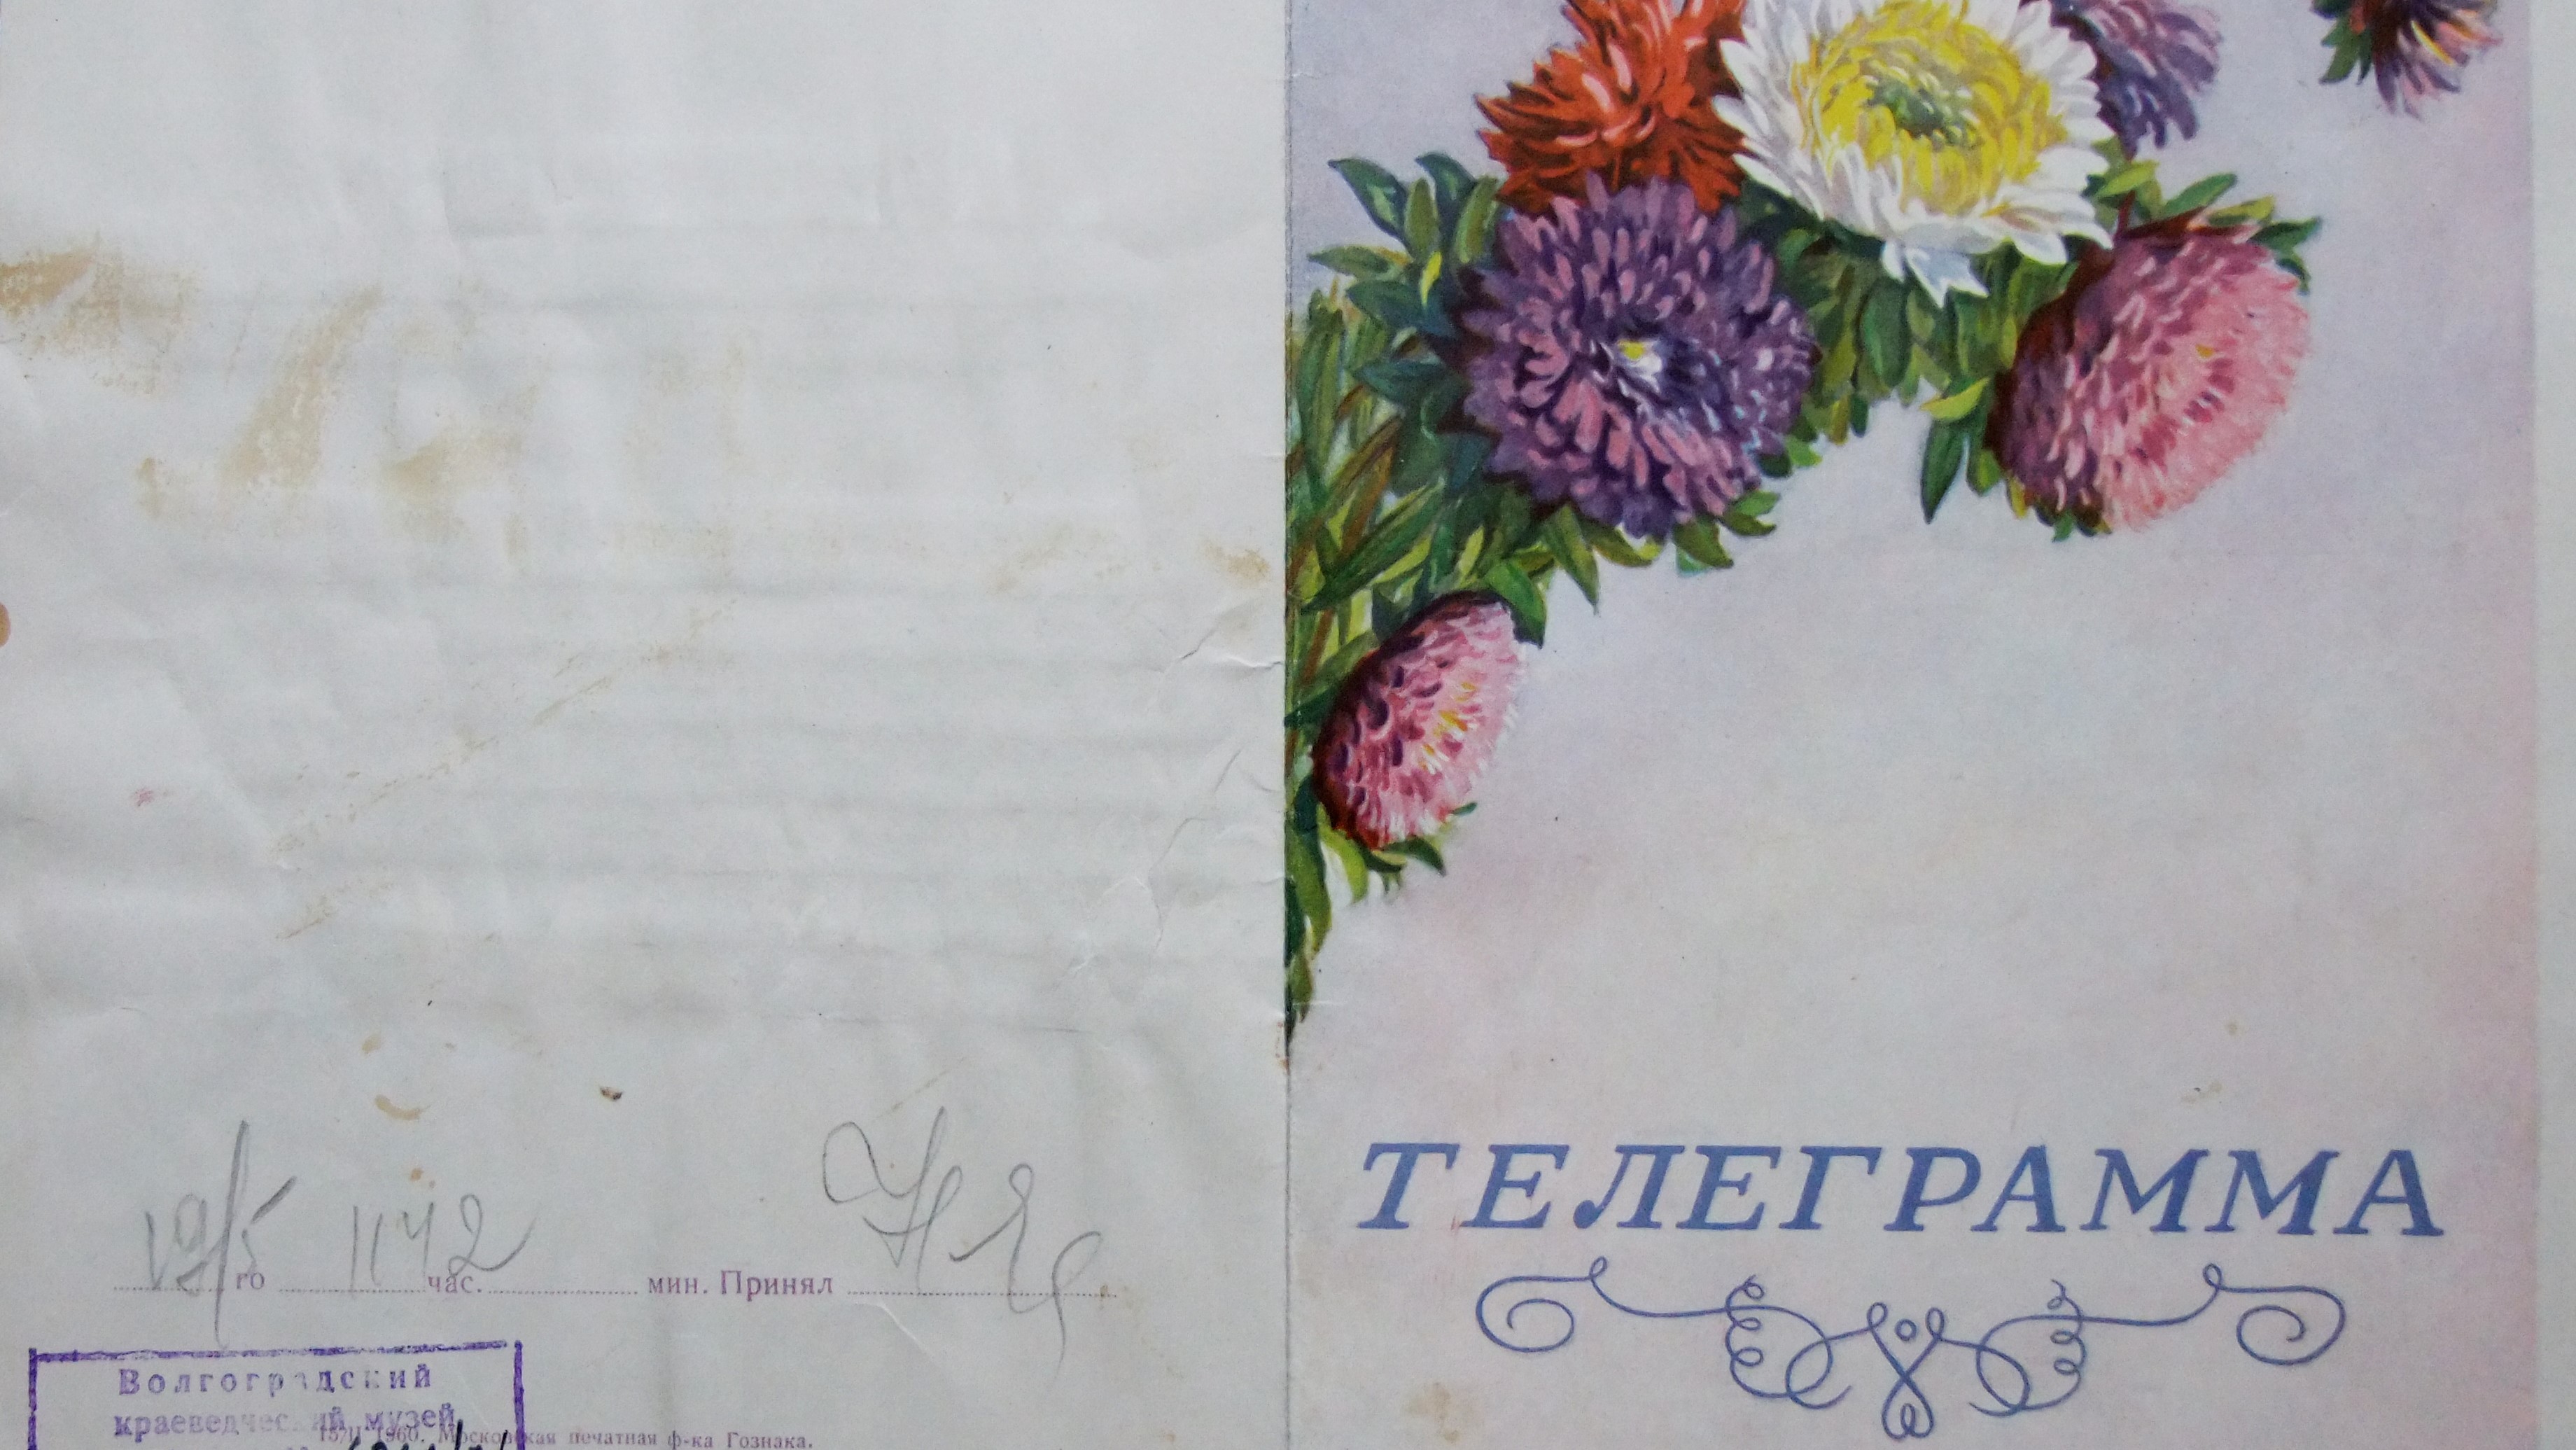 19/5 го 11 42 час. мин. Принял
Волгоградский
краеведческий музей
15/II 1960. Московская печатная ф-ка Гознака.
ТЕЛЕГРАММА